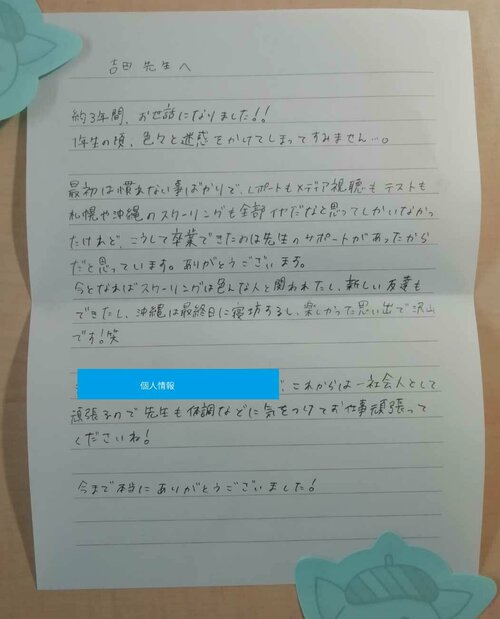 吉田先生へ
約3年間、お世話になりました!!
1年生の頃、色々と迷惑をかけてしまってすみません…。
最初は慣れない事ばかりで、レポートもメディア視聴もテストも
札幌や沖縄のスクーリングも全部イヤだなと思ってしかいなかっ
たけれど、こうして卒業できたのは先生のサポートがあったから
だと思っています。ありがとうございます。
今となればスクーリングは色んな人と関われたし、新しい友達も
できたし、沖縄は最終日に寝坊するし、楽しかった思い出で沢山
です!笑
個人情報 で、これからは一社会人として
頑張るので先生も体調などに気をつけてお仕事頑張って
くださいね!
今まで本当にありがとうございました!